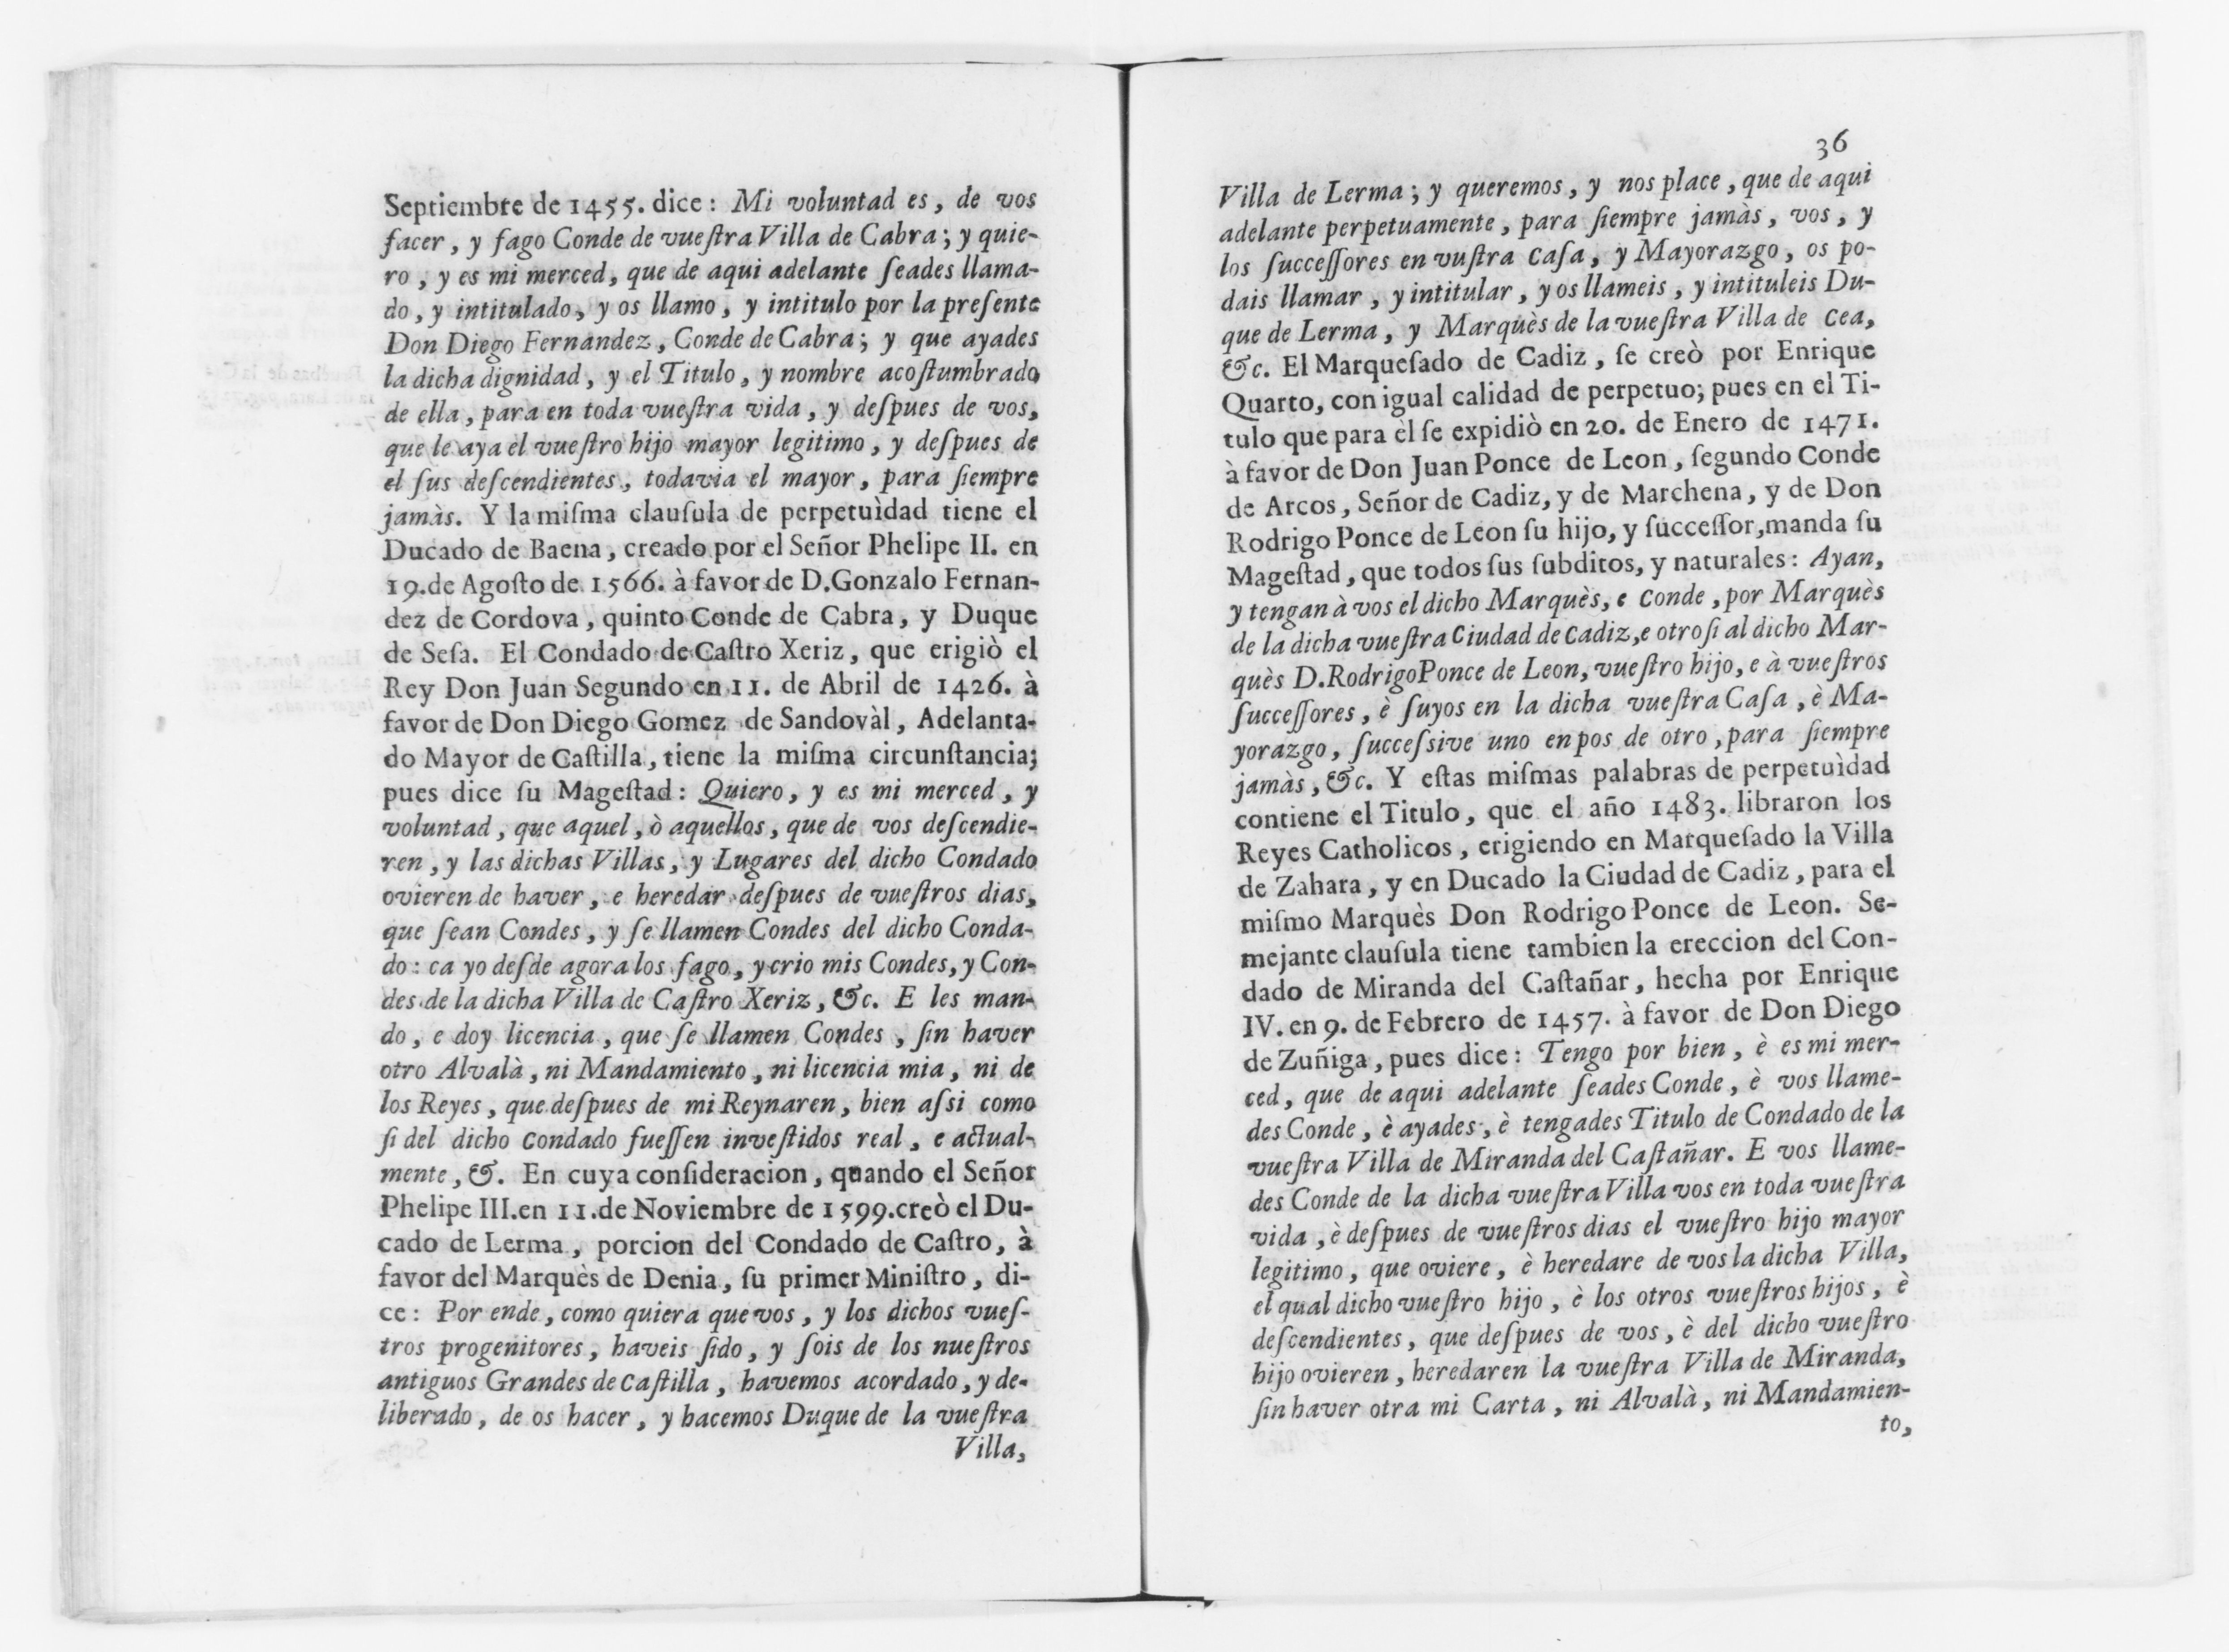 Septiembre de 1455. dice: Mi voluntad es, de vos
facer, y fago Conde de vueſtra Villa de Cabra; y quie-
ro, y es mi merced, que de aqui adelante ſeades llama-
do, y intitulado, y os llamo, y intitulo por la preſente
Don Diego Fernandez, Conde de Cabra; y que ayades
la dicha dignidad, y el Titulo, y nombre acoſtumbrado
de ella, para en toda vueſtra vida, y deſpues de vos,
que le aya el vueſtro hijo mayor legitimo, y deſpues de
el ſus deſcendientes, todavia el mayor, para ſiempre
jamàs. Y la miſma clauſula de perpetuìdad tiene el
Ducado de Baena, creado por el Señor Phelipe II. en
19.de Agoſto de 1566. à favor de D.Gonzalo Fernan-
dez de Cordova, quinto Conde de Cabra, y Duque
de Seſa. El Condado de Caſtro Xeriz, que erigiò el
Rey Don Juan Segundo en 11. de Abril de 1426. à
favor de Don Diego Gomez de Sandovàl, Adelanta-
do Mayor de Caſtilla, tiene la miſma circunſtancia;
pues dice ſu Mageſtad: Quiero, y es mi merced, y
voluntad, que aquel, ò aquellos, que de vos deſcendie-
ren, y las dichas Villas, y Lugares del dicho Condado
ovieren de haver, e heredar deſpues de vueſtros dias,
que ſean Condes, y ſe llamen Condes del dicho Conda-
do: ca yo deſde agora los fago, y crio mis Condes, y Con-
des de la dicha Villa de Caſtro Xeriz, &c. E les man-
do, e doy licencia, que ſe llamen Condes, ſin haver
otro Alvalà, ni Mandamiento, ni licencia mia, ni de
los Reyes, que deſpues de mi Reynaren, bien aſsi como
ſi del dicho Condado fueſſen inveſtidos real, e actual-
mente, &. En cuya conſideracion, quando el Señor
Phelipe III.en 11.de Noviembre de 1599.creò el Du-
cado de Lerma, porcion del Condado de Caſtro, à
favor del Marquès de Denia, ſu primer Miniſtro, di-
ce: Por ende, como quiera que vos, y los dichos vueſ-
tros progenitores, haveis ſido, y ſois de los nueſtros
antiguos Grandes de Caſtilla, havemos acordado, y de-
liberado, de os hacer, y hacemos Duque de la vueſtra
Villa,
36
Villa de Lerma; y queremos, y nos place, que de aqui
adelante perpetuamente, para ſiempre jamàs, vos, y
los ſucceſſores en vuſtra Caſa, y Mayorazgo, os po-
dais llamar, y intitular, y os llameis, y intituleis Du-
que de Lerma, y Marquès de la vueſtra Villa de Cea,
&c. El Marqueſado de Cadiz, ſe creò por Enrique
Quarto, con igual calidad de perpetuo; pues en el Ti-
tulo que para èl ſe expidiò en 20. de Enero de 1471.
à favor de Don Juan Ponce de Leon, ſegundo Conde
de Arcos, Señor de Cadiz, y de Marchena, y de Don
Rodrigo Ponce de Leon ſu hijo, y ſucceſſor,manda ſu
Mageſtad, que todos ſus ſubditos, y naturales: Ayan,
y tengan à vos el dicho Marquès, e Conde, por Marquès
de la dicha vueſtra Ciudad de Cadiz,e otroſi al dicho Mar-
quès D.Rodrigo Ponce de Leon, vueſtro hijo, e à vueſtros
ſucceſſores, è ſuyos en la dicha vueſtra Caſa, è Ma-
yorazgo, ſucceſsive uno en pos de otro, para ſiempre
jamàs, &c. Y eſtas miſmas palabras de perpetuìdad
contiene el Titulo, que el año 1483. libraron los
Reyes Catholicos, erigiendo en Marqueſado la Villa
de Zahara, y en Ducado la Ciudad de Cadiz, para el
miſmo Marquès Don Rodrigo Ponce de Leon. Se-
mejante clauſula tiene tambien la ereccion del Con-
dado de Miranda del Caſtañar, hecha por Enrique
IV. en 9. de Febrero de 1457. à favor de Don Diego
de Zuñiga, pues dice: Tengo por bien, è es mi mer-
ced, que de aqui adelante ſeades Conde, è vos llame-
des Conde, è ayades, è tengades Titulo de Condado de la
vueſtra Villa de Miranda del Caſtañar. E vos llame-
des Conde de la dicha vueſtra Villa vos en toda vueſtra
vida, è deſpues de vueſtros dias el vueſtro hijo mayor
legitimo, que oviere, è heredare de vos la dicha Villa,
el qual dicho vueſtro hijo, è los otros vueſtros hijos, è
deſcendientes, que deſpues de vos, è del dicho vueſtro
hijo ovieren, heredaren la vueſtra Villa de Miranda,
ſin haver otra mi Carta, ni Alvalà, ni Mandamien-
to,